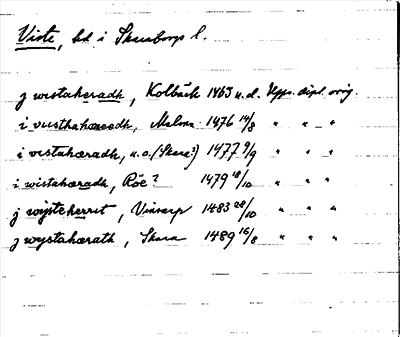 Viste, hd i Skaraborgs l.
j wistaheradh, Kolbäck 1463 u.d. Upps. dipl. orig.
i viisthahæredh, Malma 1476 14/8 " " "
i vistahæradh, u.o. (Skara?) 1477 9/9 " " "
i wistahæradh, Röö? 1479 18/10 " " "
j wijsteherrit, Vinsarp 1483 28/10 " " "
j wystahærath, Skara 1489 16/8 " " "